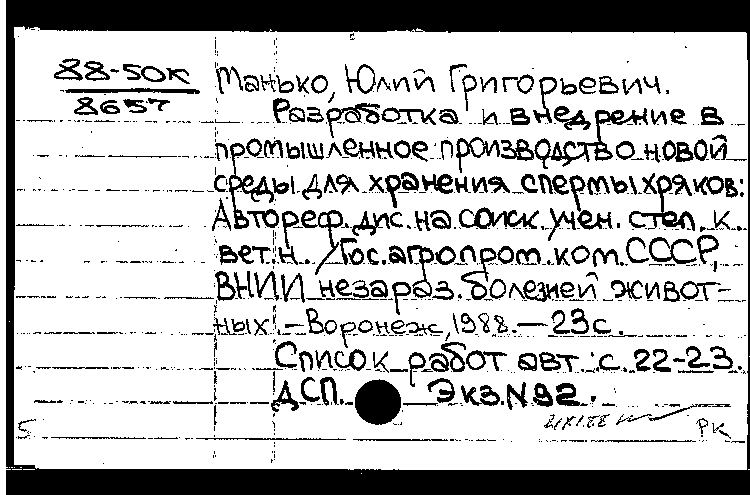 88-50к
8657
Манько, Юлий Григорьевич.
Разработка и внедрение в
промышленное производство новой
среды для хранения спермы хряков:
Автореф. дис. на соиск. учен. степ. к.
вет. н. /Гос. агропром. ком. СССР,
ВНИИ незараз. болезней живот-
ных. - Воронеж, 1988. - 23 с.
Список работ авт.: с. 22-23.
ДСП. Экз. N 92.
5
РК